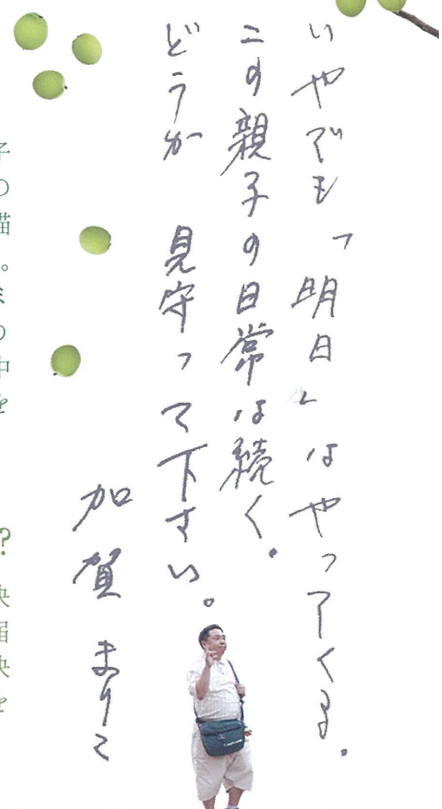 いやでも「明日」はやってくる。
この親子の日常は続く。
どうか 見守って下さい。
加賀 まりこ